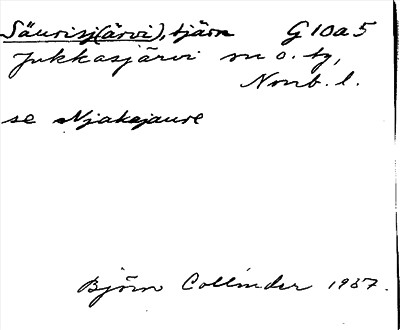 Säurisj(ärvi), tjärn G10a5
Jukkasjärvi sn o. tg,
Norrb. l.
se Njakajaure
Björn Collinder 1937.